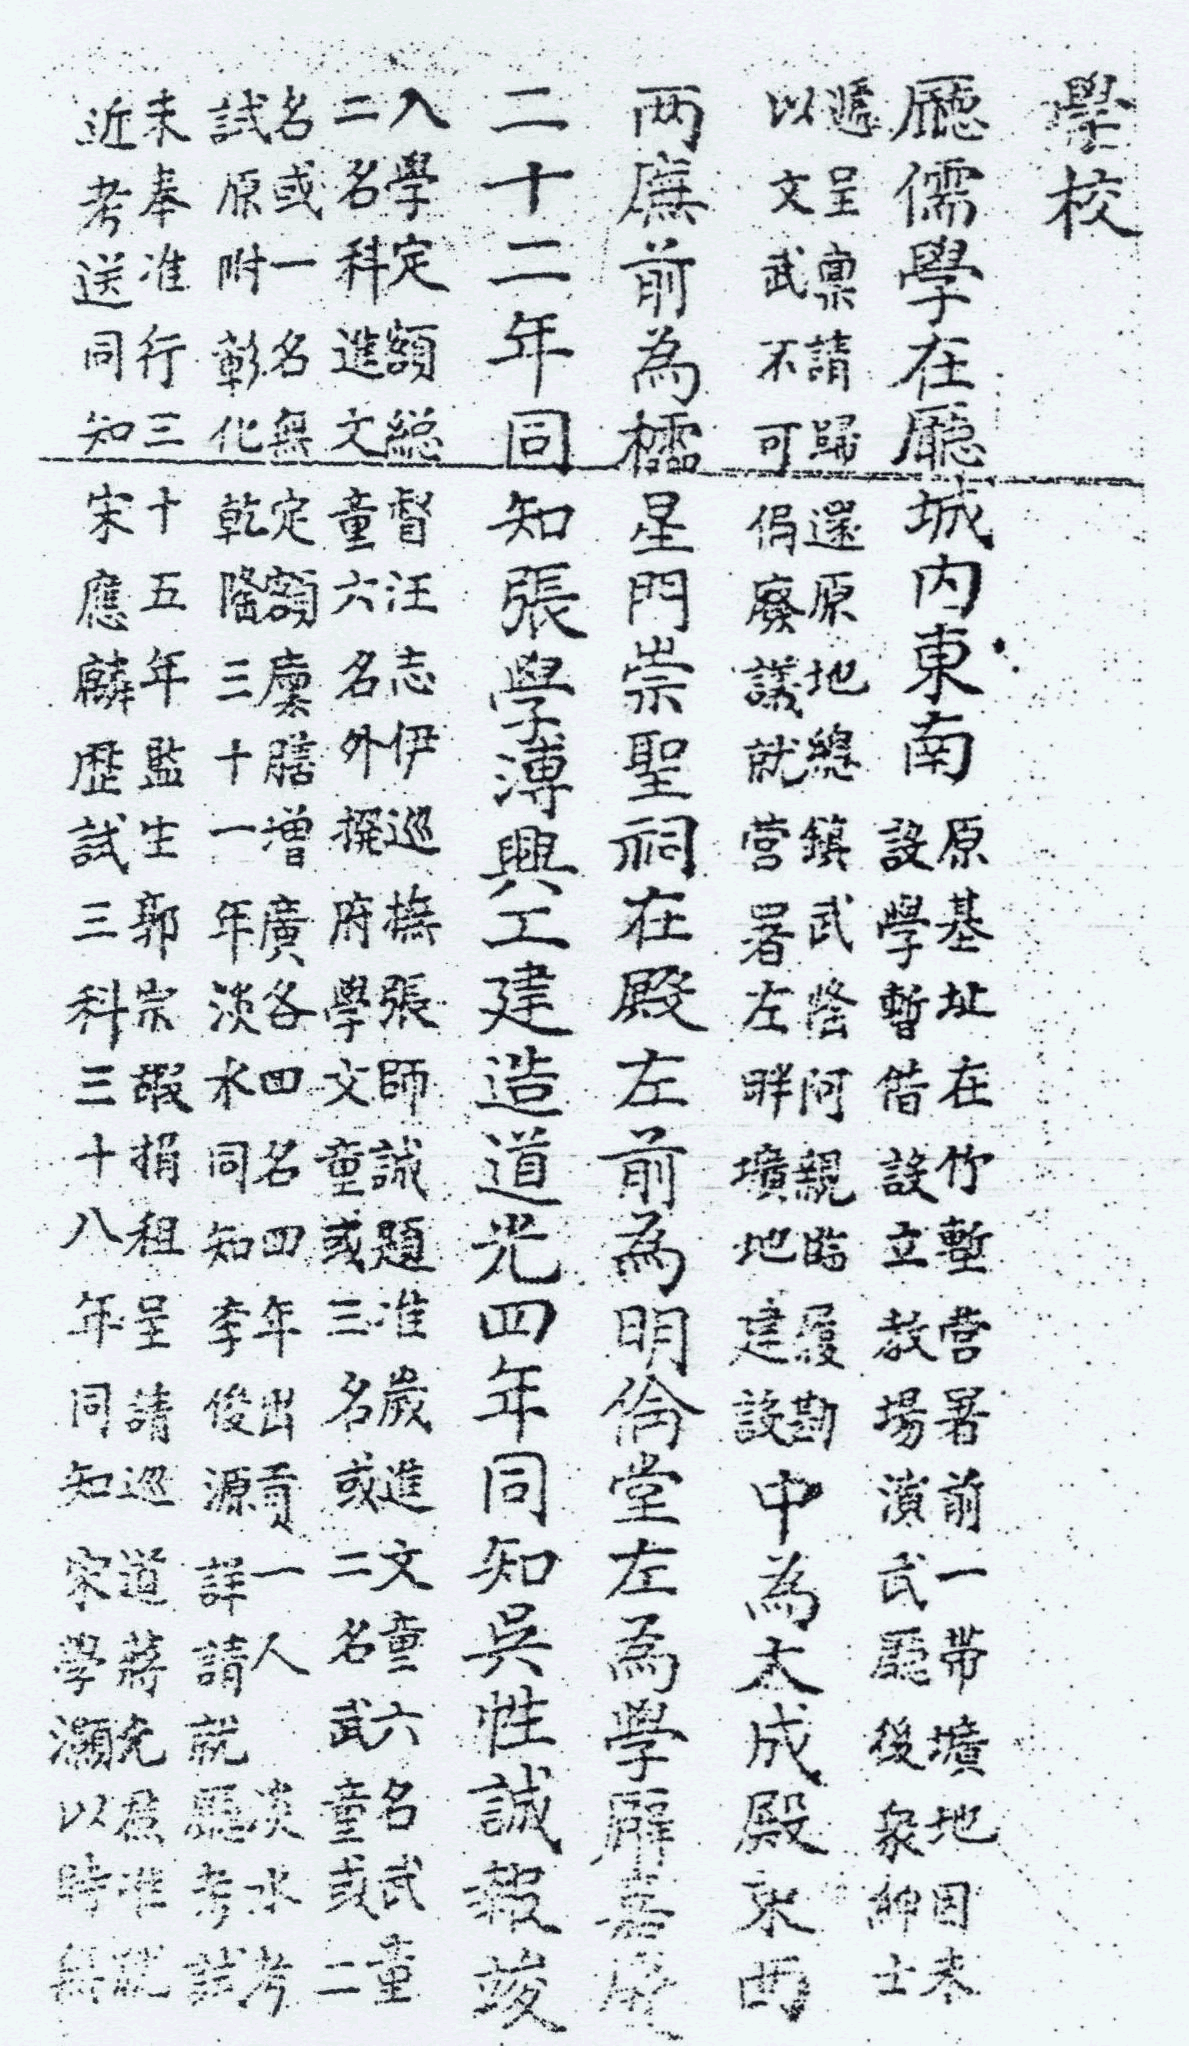 學校
廳儒學在廳城內東南
原基址在竹塹營署前一帶壙地因未
設學暫借設立教場演武廳後衆紳士
遞呈禀請歸還原地總鎮武隆阿親臨履勘
以文武不可偏廢議就營署左畔壙地建設
中為大成殿東西
两廡前為櫺星門崇聖祠在殿左前為明倫堂左為學廨嘉慶
二十二年同知張學溥興工建造道光四年同知吳性誠報竣
入學定額総督汪志伊巡撫張師誠題准歲進文童六名武童
二名科進文童六名外撥府學文童或三名或二名武童或二
名或一名無定額廩膳增廣各四名四年出貢一人 淡水考
試原附彰化乾隆三十一年淡水同知李俊源詳請就廳考試
未奉准行三十五年監生郭宗嘏捐租呈請巡道蔣允焄准就
近考送同知宋應麟歷試三科三十八年同知宋學灝以時無